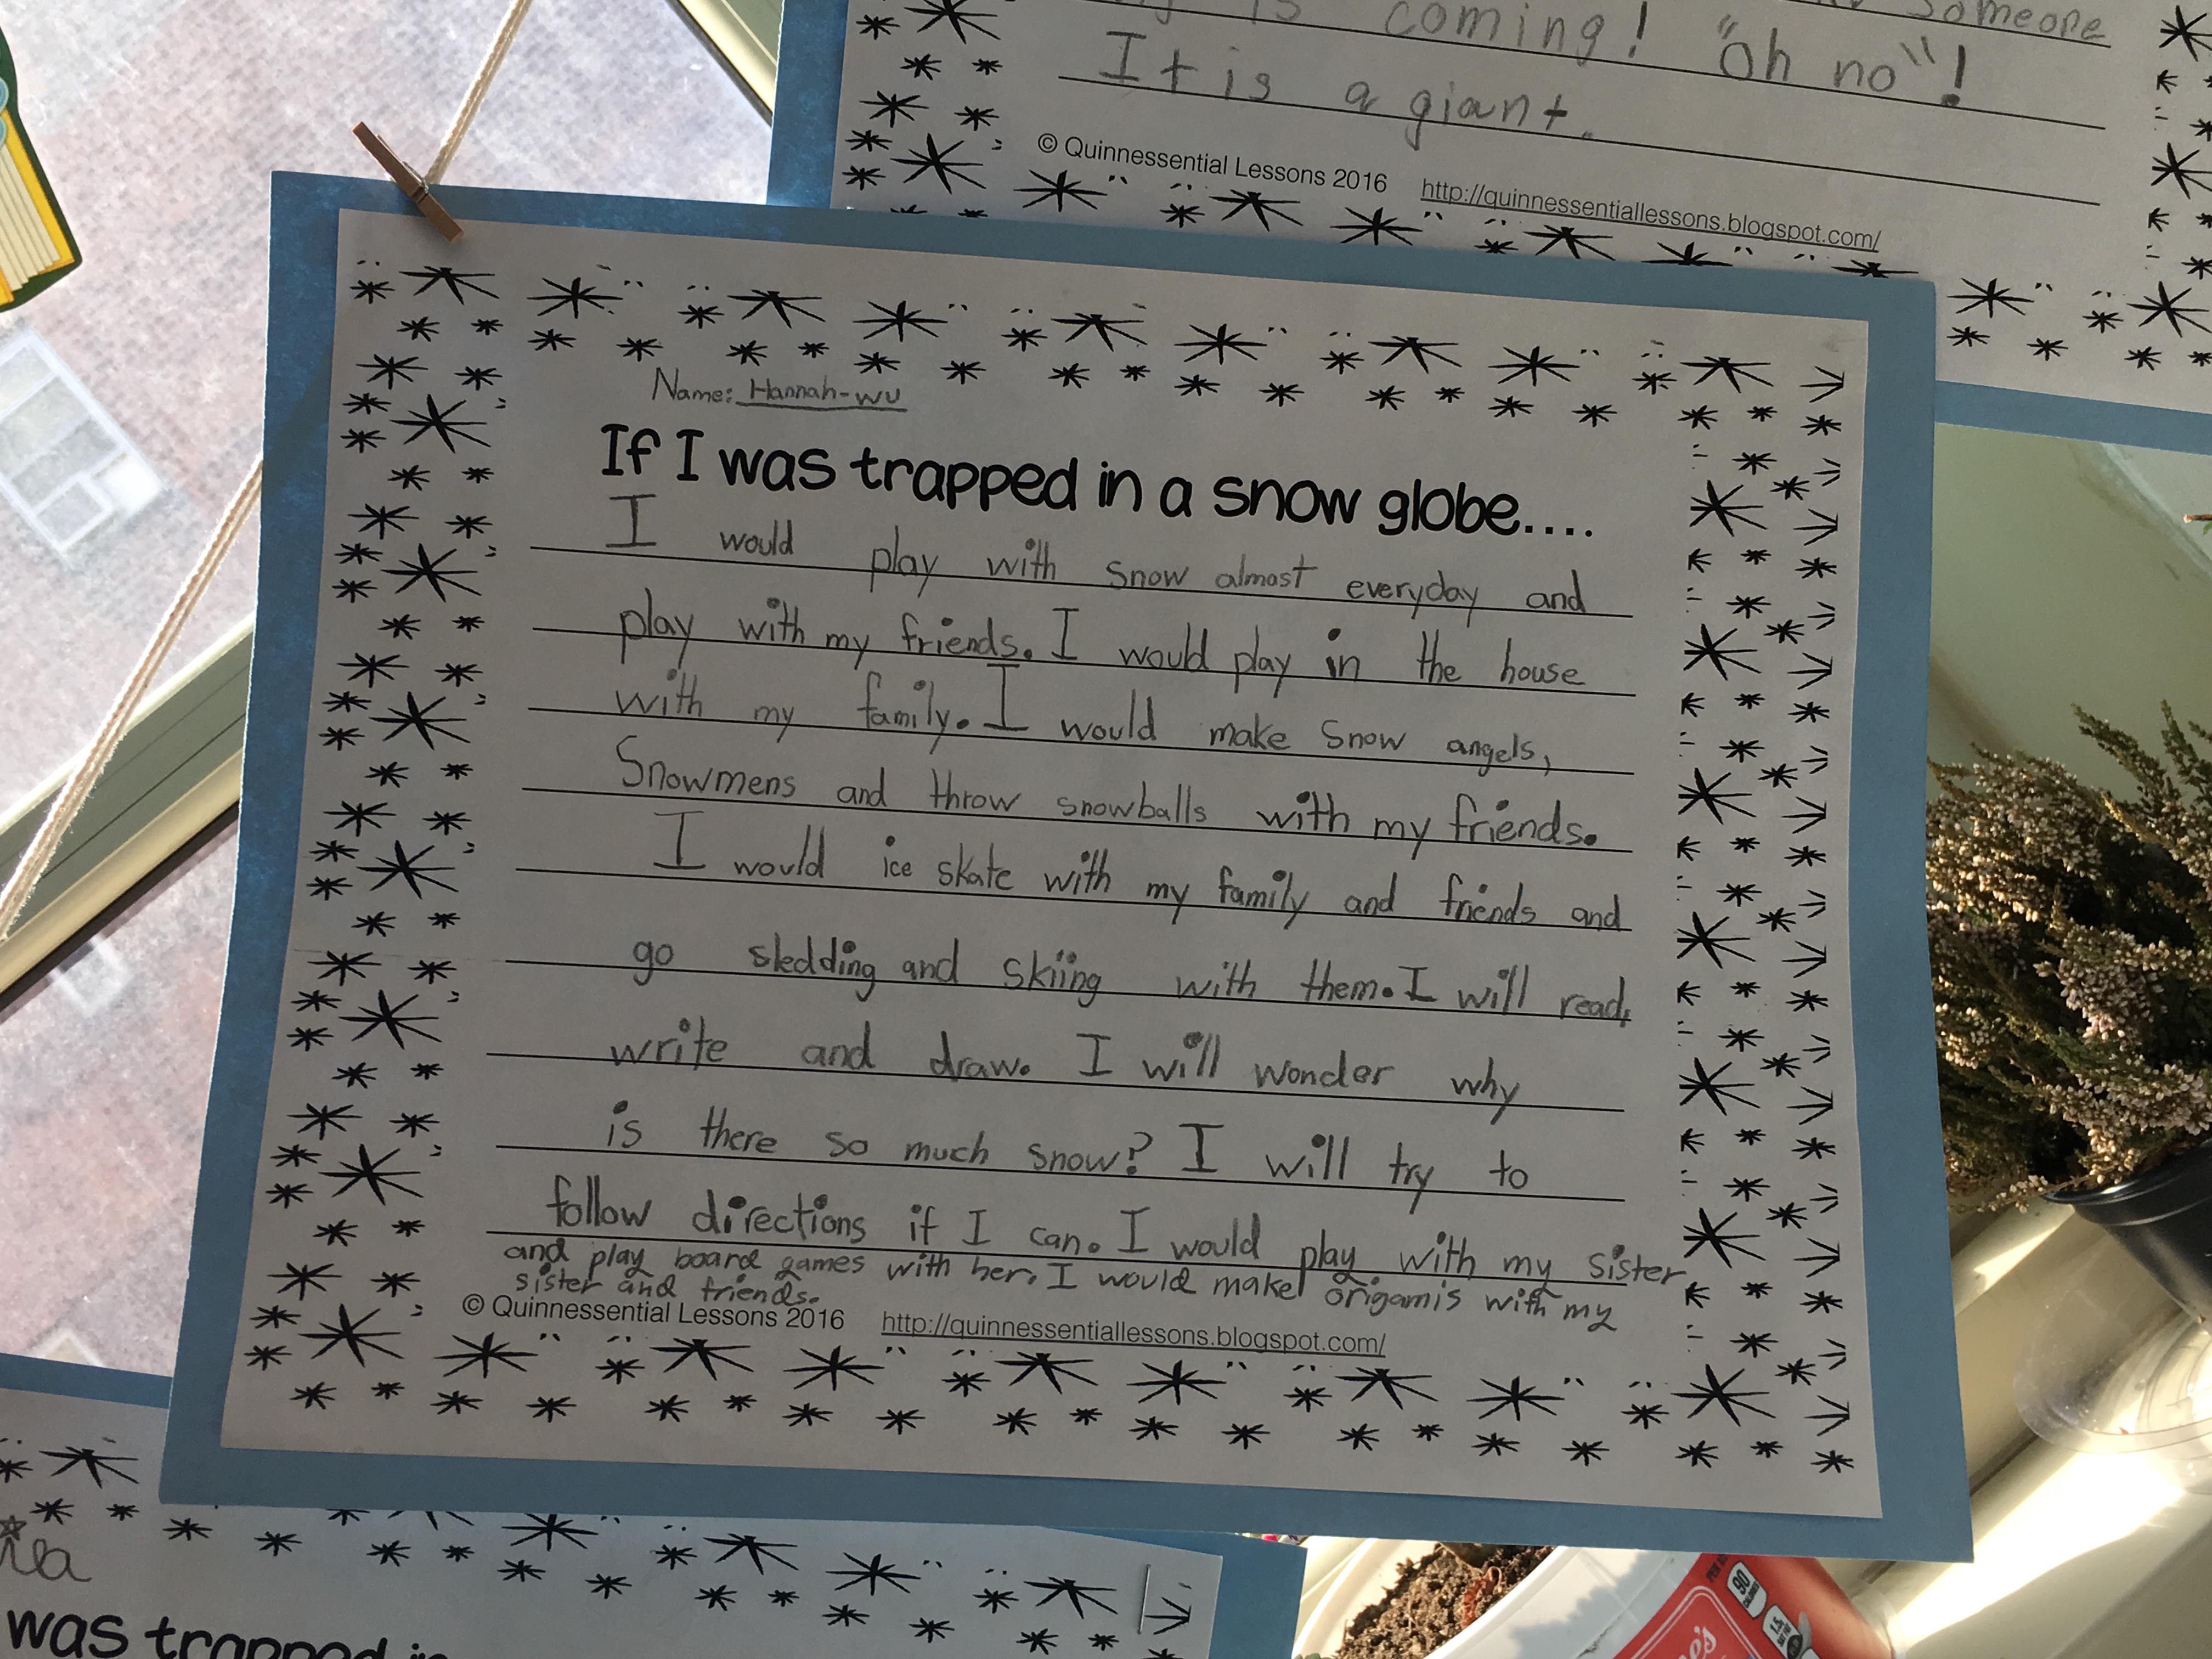 is coming! "oh no"!
someone
It is a giant.
© Quinnessential Lessons 2016 http://quinnessentiallessons.blogspot.com/
Name: Hannah-wu
If I was trapped in a snow globe....
I would play with snow almost everyday and
play with my friends. I would play in the house
with my family. I would make snow angels,
Snowmens and throw snowballs with my friends.
I would ice skate with my family and friends and
go sledding and skiing with them. I will read,
write and draw. I will wonder why
is there so much snow? I will try to
follow directions if I can. I would play with my sister
and play board games with her. I would make origamis with my
sister and friends.
© Quinnessential Lessons 2016 http://quinnessentiallessons.blogspot.com/
was trapped in
90